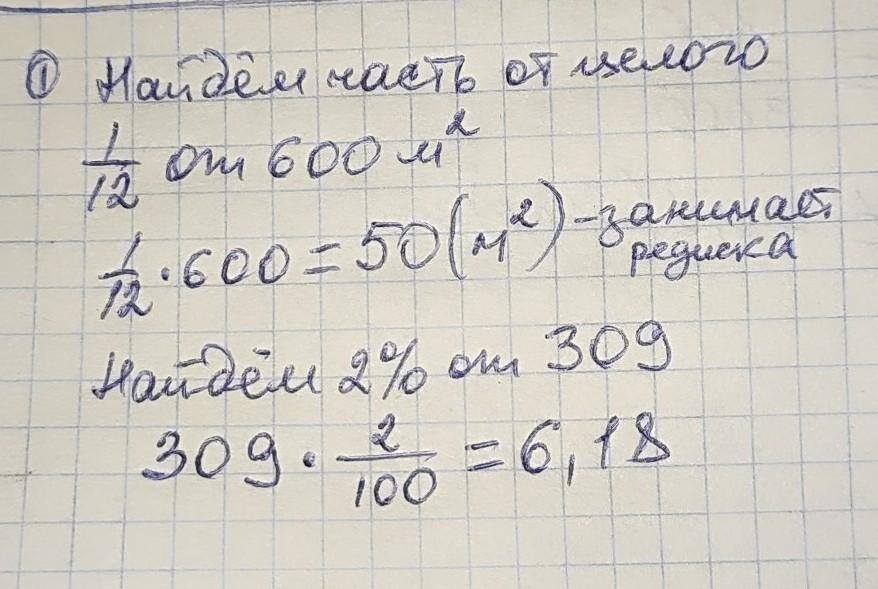 ① Найдём часть от целого
1/12 от 600 м²
1/12 · 600 = 50 (м²) - занимает
редиска
Найдём 2% от 309
309 · 2/100 = 6,18